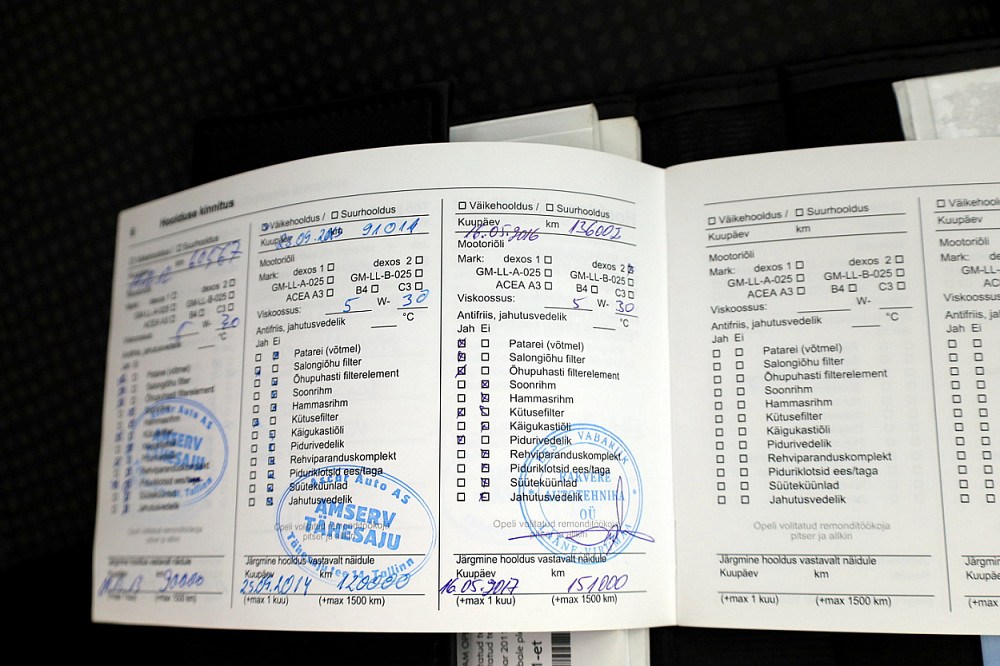 8 Hoolduse kinnitus
Väikehooldus / Suurhooldus
km 60567
Mootoriõli
Mark: dexos 1 dexos 2
GM-LL-A-025 GM-LL-B-025
ACEA A3 B4 C3
Viskoossus: W- 30
Antifriis, jahutusvedelik °C
Jah Ei
Patarei (võtmel)
Salongiõhu filter
Õhupuhasti filterelement
Soonrihm
Hammasrihm
Kütusefilter
Käigukastiõli
Pidurivedelik
Rehviparanduskomplekt
Piduriklotsid ees/taga
Süüteküünlad
Jahutusvedelik
Ascar Auto AS
AMSERV
TÄHESAJU
Tallinn
Opeli volitatud remonditöökoja
pitser ja allkiri
Järgmine hooldus vastavalt näidule
Kuupäev km
90000
(+max 1 kuu) (+max 1500 km)
Väikehooldus / Suurhooldus
Kuupäev 09. km 91011
Mootoriõli
Mark: dexos 1 dexos 2
GM-LL-A-025 GM-LL-B-025
ACEA A3 B4 C3
Viskoossus: 5 W- 30
Antifriis, jahutusvedelik °C
Jah Ei
Patarei (võtmel)
Salongiõhu filter
Õhupuhasti filterelement
Soonrihm
Hammasrihm
Kütusefilter
Käigukastiõli
Pidurivedelik
Rehviparanduskomplekt
Piduriklotsid ees/taga
Süüteküünlad
Jahutusvedelik
Ascar Auto AS
AMSERV
TÄHESAJU
Tähesaju tee Tallinn
Opeli volitatud remonditöökoja
pitser ja allkiri
Järgmine hooldus vastavalt näidule
Kuupäev km
25.09.2014 120000
(+max 1 kuu) (+max 1500 km)
Väikehooldus / Suurhooldus
Kuupäev 16.05.2016 km 136002
Mootoriõli
Mark: dexos 1 dexos 2
GM-LL-A-025 GM-LL-B-025
ACEA A3 B4 C3
Viskoossus: 5 W- 30
Antifriis, jahutusvedelik °C
Jah Ei
Patarei (võtmel)
Salongiõhu filter
Õhupuhasti filterelement
Soonrihm
Hammasrihm
Kütusefilter
Käigukastiõli
Pidurivedelik
Rehviparanduskomplekt
Piduriklotsid ees/taga
Süüteküünlad
Jahutusvedelik
EESTI VABARIIK
RAKVERE
AUTOTEHNIKA
OÜ
LÄÄNE-VIRUMAA
Opeli volitatud remonditöökoja
pitser ja allkiri
Järgmine hooldus vastavalt näidule
Kuupäev km
16.05.2017 151000
(+max 1 kuu) (+max 1500 km)
Väikehooldus / Suurhooldus
Kuupäev km
Mootoriõli
Mark: dexos 1 dexos 2
GM-LL-A-025 GM-LL-B-025
ACEA A3 B4 C3
Viskoossus: W-
Antifriis, jahutusvedelik °C
Jah Ei
Patarei (võtmel)
Salongiõhu filter
Õhupuhasti filterelement
Soonrihm
Hammasrihm
Kütusefilter
Käigukastiõli
Pidurivedelik
Rehviparanduskomplekt
Piduriklotsid ees/taga
Süüteküünlad
Jahutusvedelik
Opeli volitatud remonditöökoja
pitser ja allkiri
Järgmine hooldus vastavalt näidule
Kuupäev km
(+max 1 kuu) (+max 1500 km)
Väikehooldus
Kuupäev
Mootoriõli
Mark:
GM-LL-A
ACEA
Viskoossus:
Antifriis, jahut
Jah Ei
Järgmine hool
Kuupäev
(+max 1 kuu)
1-et